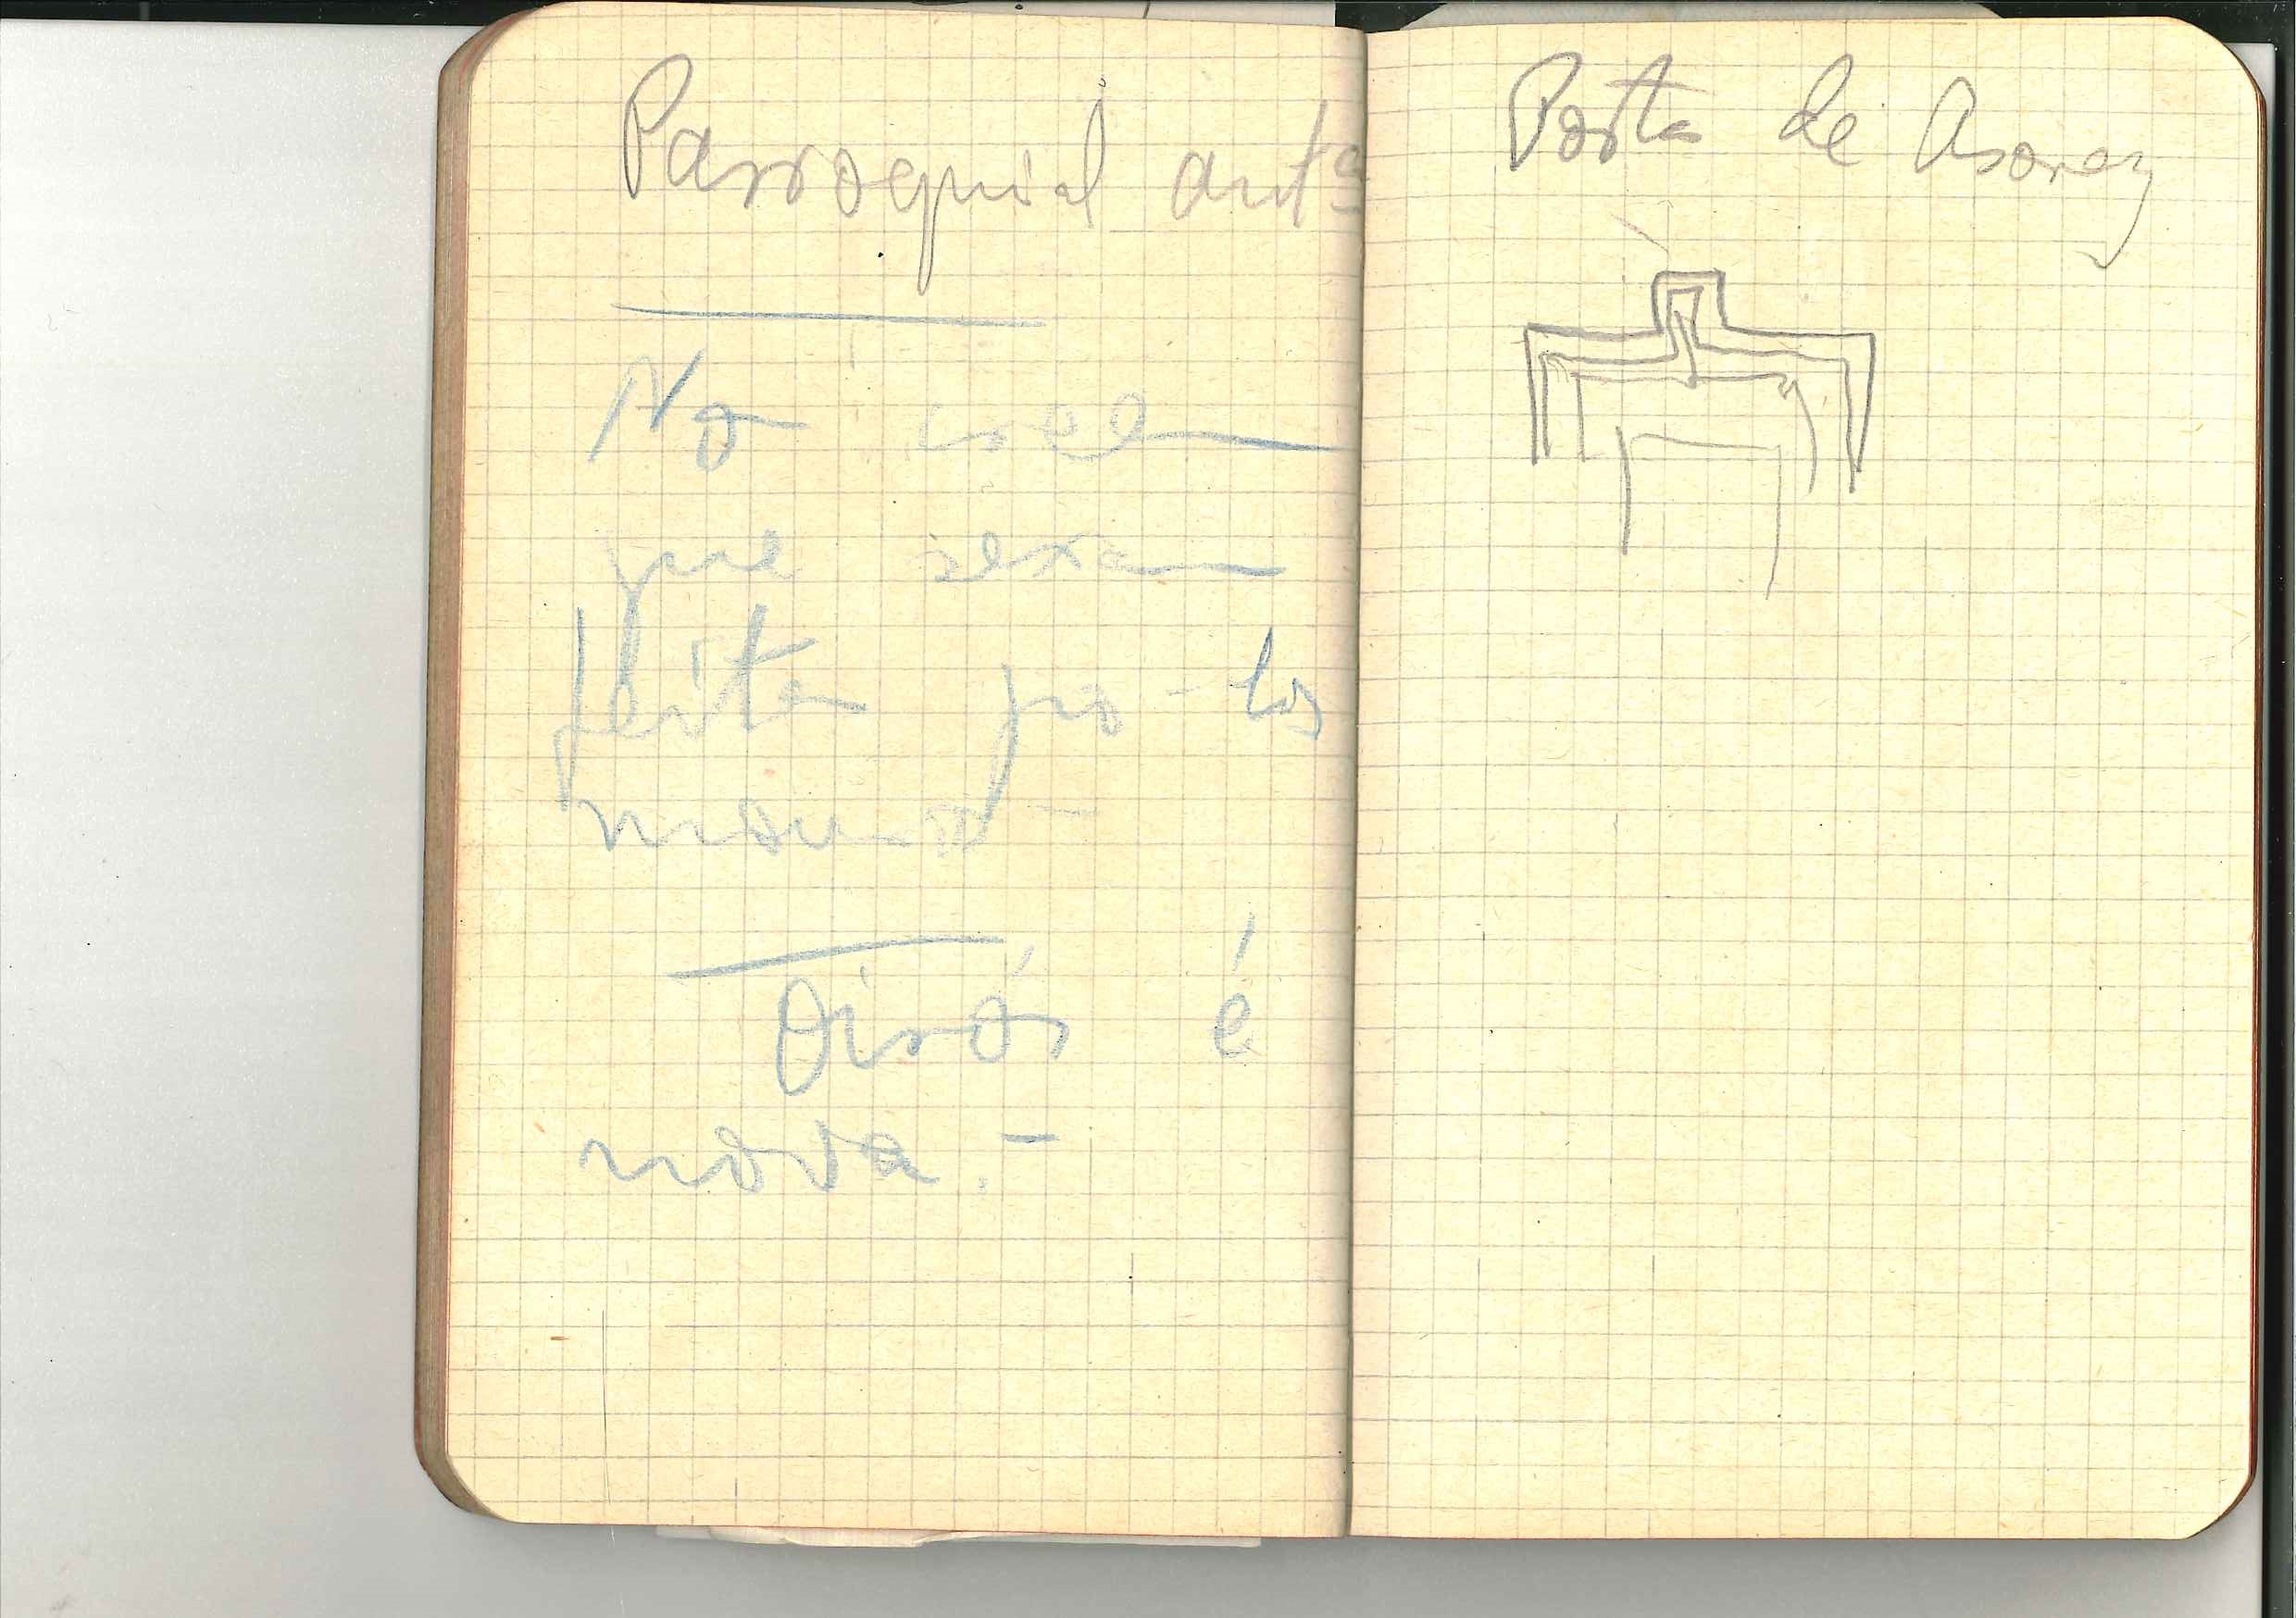 Parroquial antª
No creen
que sexan
feita po-los
mouros -
Oirós é
nova. -
Porta de Asorey